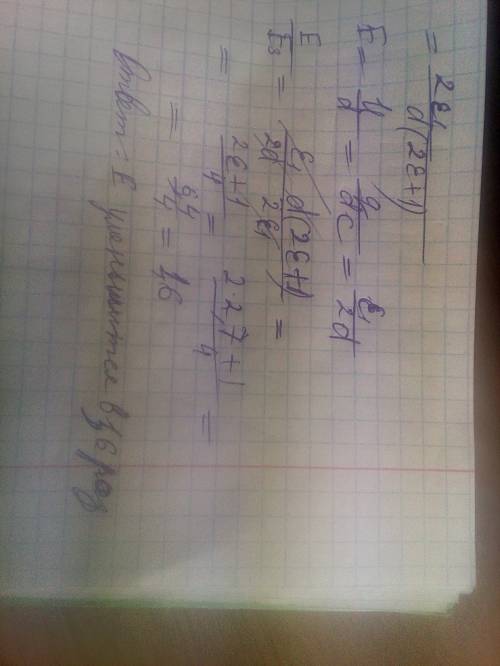 = 2ℰ₁ / d(2ε+1)
E = U/d = q/dC = ℰ₁/2d
E/E₃ = ℰ₁/2d · d(2ε+1)/2ℰ₁ =
= (2ε+1)/4 = (2·2,7+1)/4 =
= 6,4/4 = 1,6
Ответ: E уменьшится в 1,6 раз